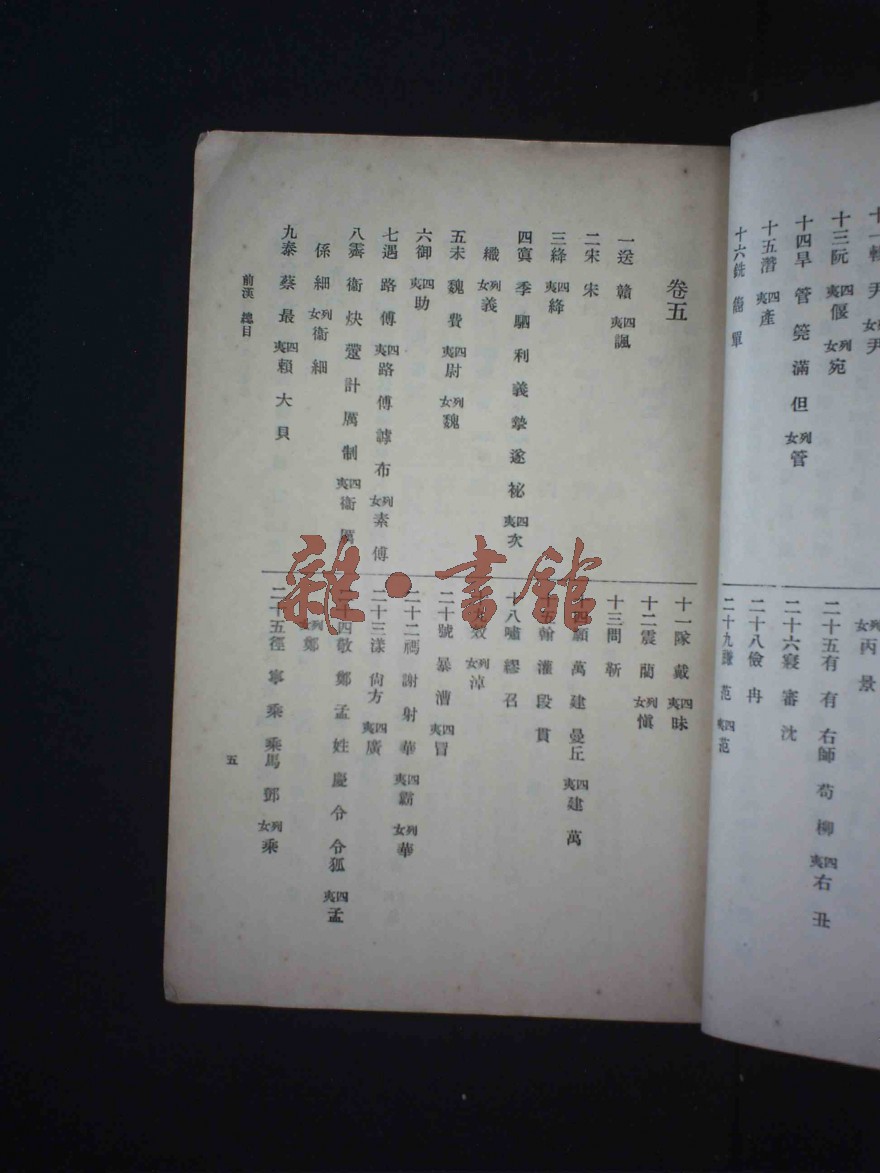 十三阮 四夷 偃 列女 宛
十四旱 管 筦 滿 但 列女 管
十五潸 四夷 產
十六銑 簡 單
列女 丙 景
二十五有 有 右師 苟 柳 四夷 右 丑
二十六寑 審 沈
二十八儉 冉
二十九豏 范 四夷 范
卷五
一送 贛 四夷 諷
二宋 宋
三絳 四夷 絳
四寘 季 駟 利 義 摯 遂 祕 四夷 次
織 列女 義
五未 魏 費 四夷 尉 列女 魏
六御 四夷 助
七遇 路 傅 四夷 路 傅 謼 布 列女 素 傅
八霽 衞 炔 薳 計 厲 制 四夷 衞 厲
係 細 列女 衞 細
九泰 蔡 最 四夷 賴 大 貝
十一隊 戴 四夷 昧
十二震 藺 列女 愼
十三問 靳
十四願 萬 建 曼丘 四夷 建 萬
十五翰 灌 段 貫
十八嘯 繆 召
十九效 列女 淖
二十號 暴 漕 四夷 冒
二十二禡 謝 射 華 四夷 霸 列女 華
二十三漾 尙方 四夷 廣
二十四敬 鄭 孟 姓 慶 令 令狐 四夷 孟
列女 鄭
二十五徑 甯 乘 乘馬 鄧 列女 乘
前漢 總目
五
雜·書館